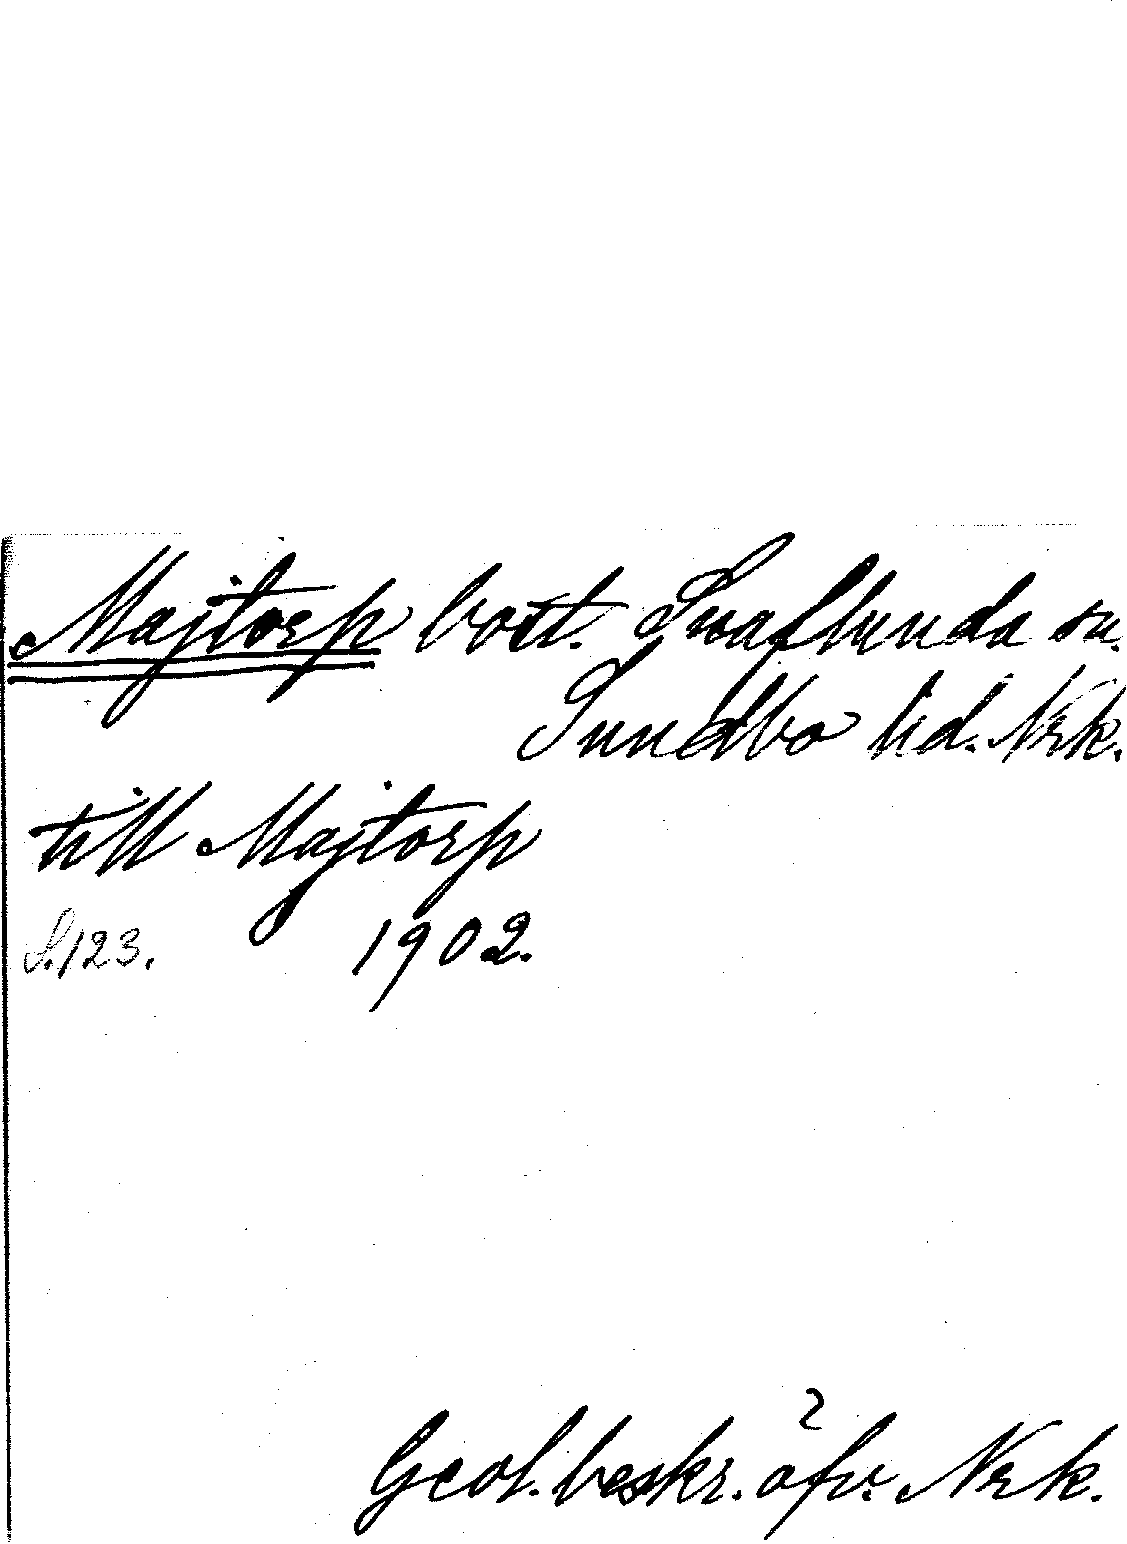 Majtorp bost. Snaflunda sn.
Sundbo hd. Nrk.
till Majtorp
S. 123. 1902.
Geol. beskr. öfv. Nrk.